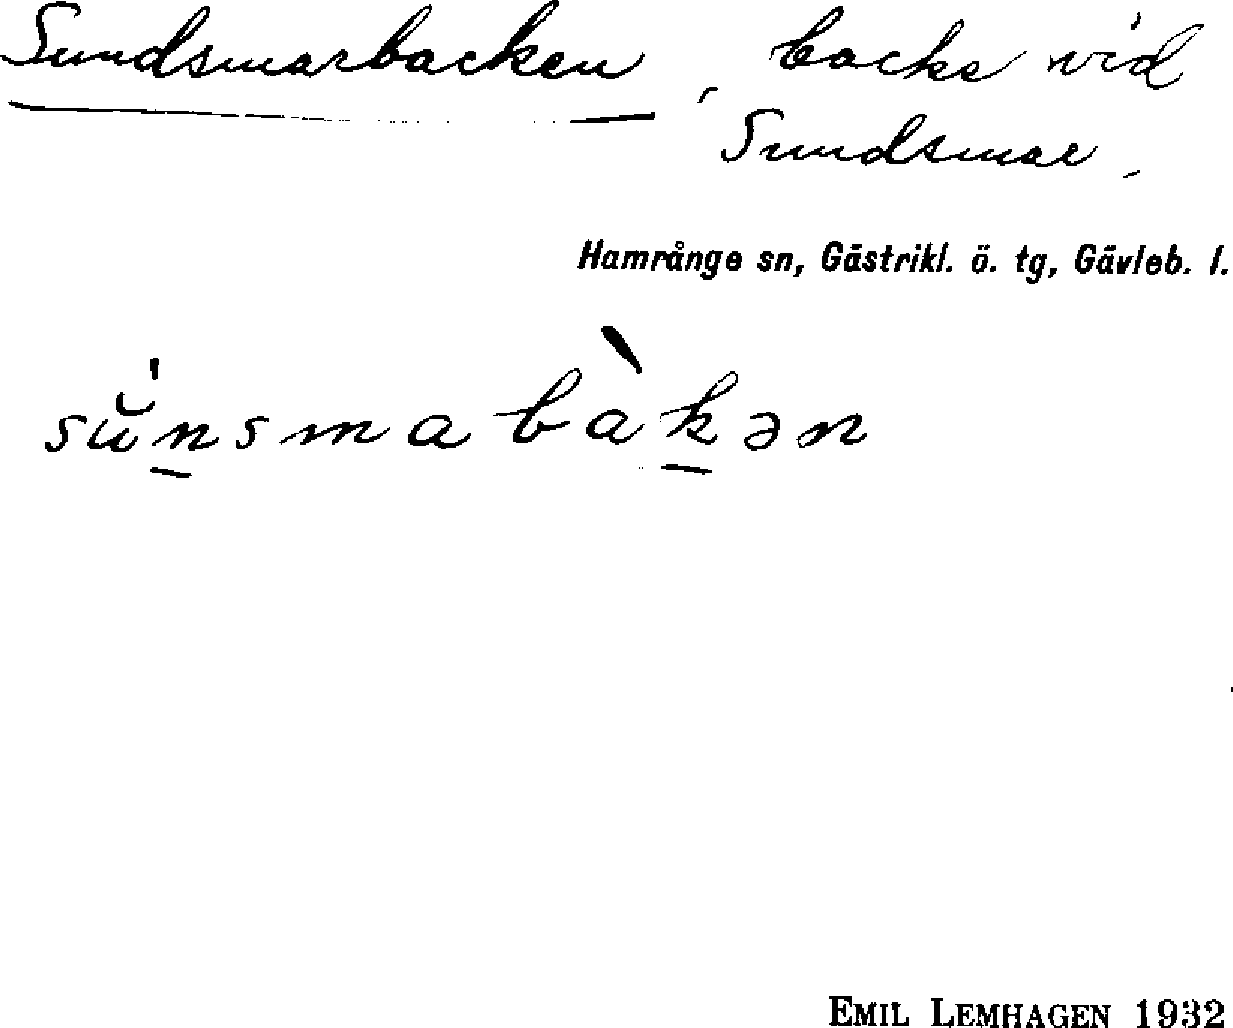 Sundsmarbacken, backe vid
Sundsmar.
Hamrånge sn, Gästrikl. ö. tg, Gävleb. l.
sŭ́n̲smabàk̲ən
EMIL LEMHAGEN 1932